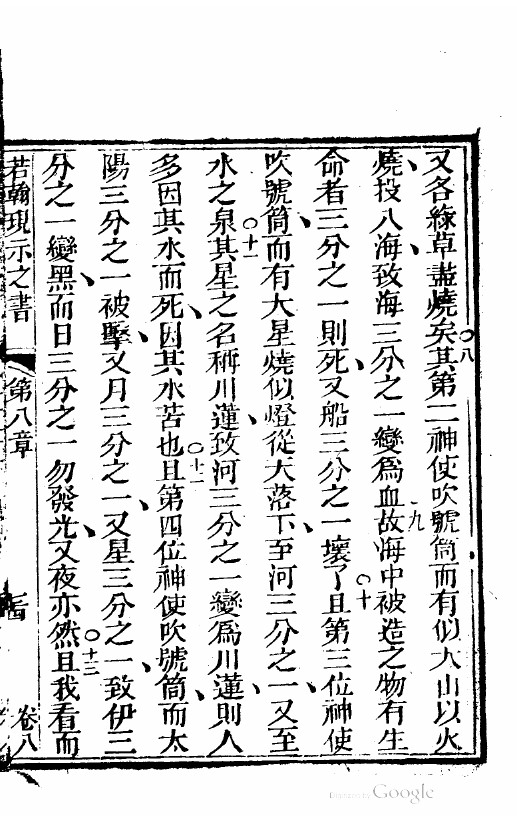 又各綠草盡燒矣○八其第二神使吹號筒而有似大山以火
燒投入海致海三分之一變爲血九故海中被造之物有生
命者三分之一則死又船三分之一壞了○十且第三位神使
吹號筒而有大星燒似燈從天落下至河三分之一又至
水之泉○十一其星之名稱川蓮致河三分之一變爲川蓮則人
多因其水而死因其水苦也○十二且第四位神使吹號筒而太
陽三分之一被擊又月三分之一又星三分之一致伊三
分之一變黑而日三分之一勿發光又夜亦然○十三且我看而
若翰現示之書 第八章 卷八
Digitized by Google